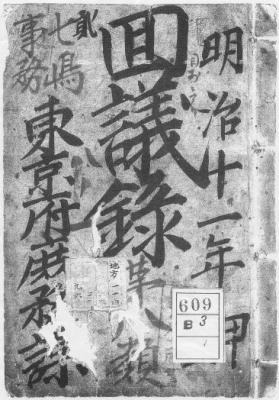 明治十一年 甲
回議録
第八類
貳
七嶋
事務
東京府庶務課
地方
609
B 3